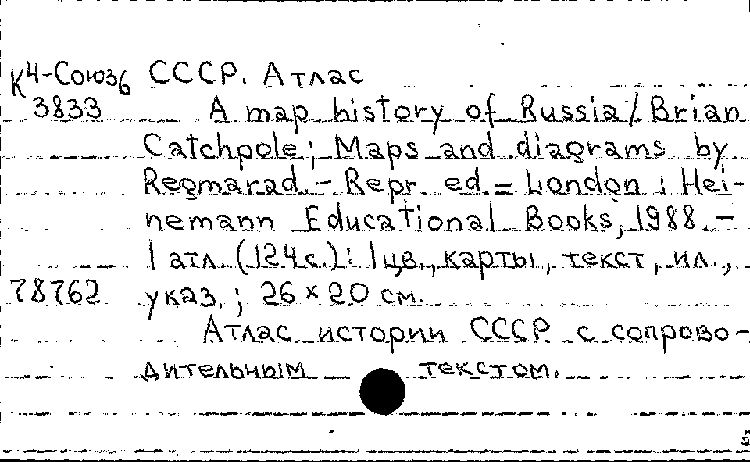 К4-Союз6 СССР. Атлас
3833 A map history of Russia / Brian
Catchpole; Maps and diagrams by
Regmarad. - Repr. ed. = London : Hei-
nemann Educational Books, 1988. -
1 атл. (124 с.): 1 цв., карты, текст, ил.,
78762 указ. ; 26 × 20 см.
Атлас истории СССР с сопрово-
дительным текстом.